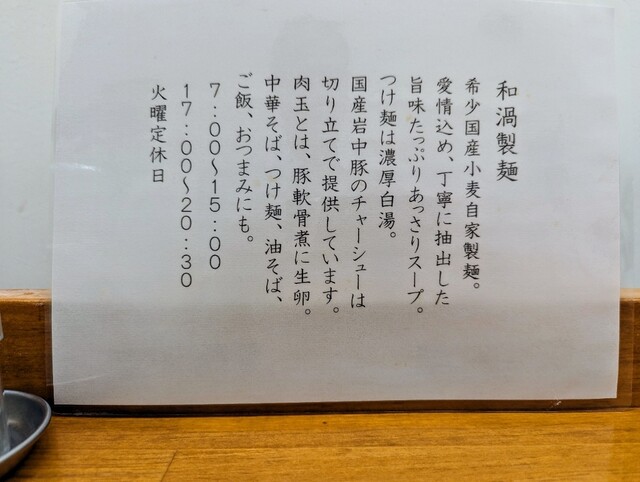 和渦製麺
希少国産小麦自家製麺。
愛情込め、丁寧に抽出した
旨味たっぷりあっさりスープ。
つけ麺は濃厚白湯。
国産岩中豚のチャーシューは
切り立てで提供しています。
肉玉とは、豚軟骨煮に生卵。
中華そば、つけ麺、油そば、
ご飯、おつまみにも。
7:00〜15:00
17:00〜20:30
火曜定休日